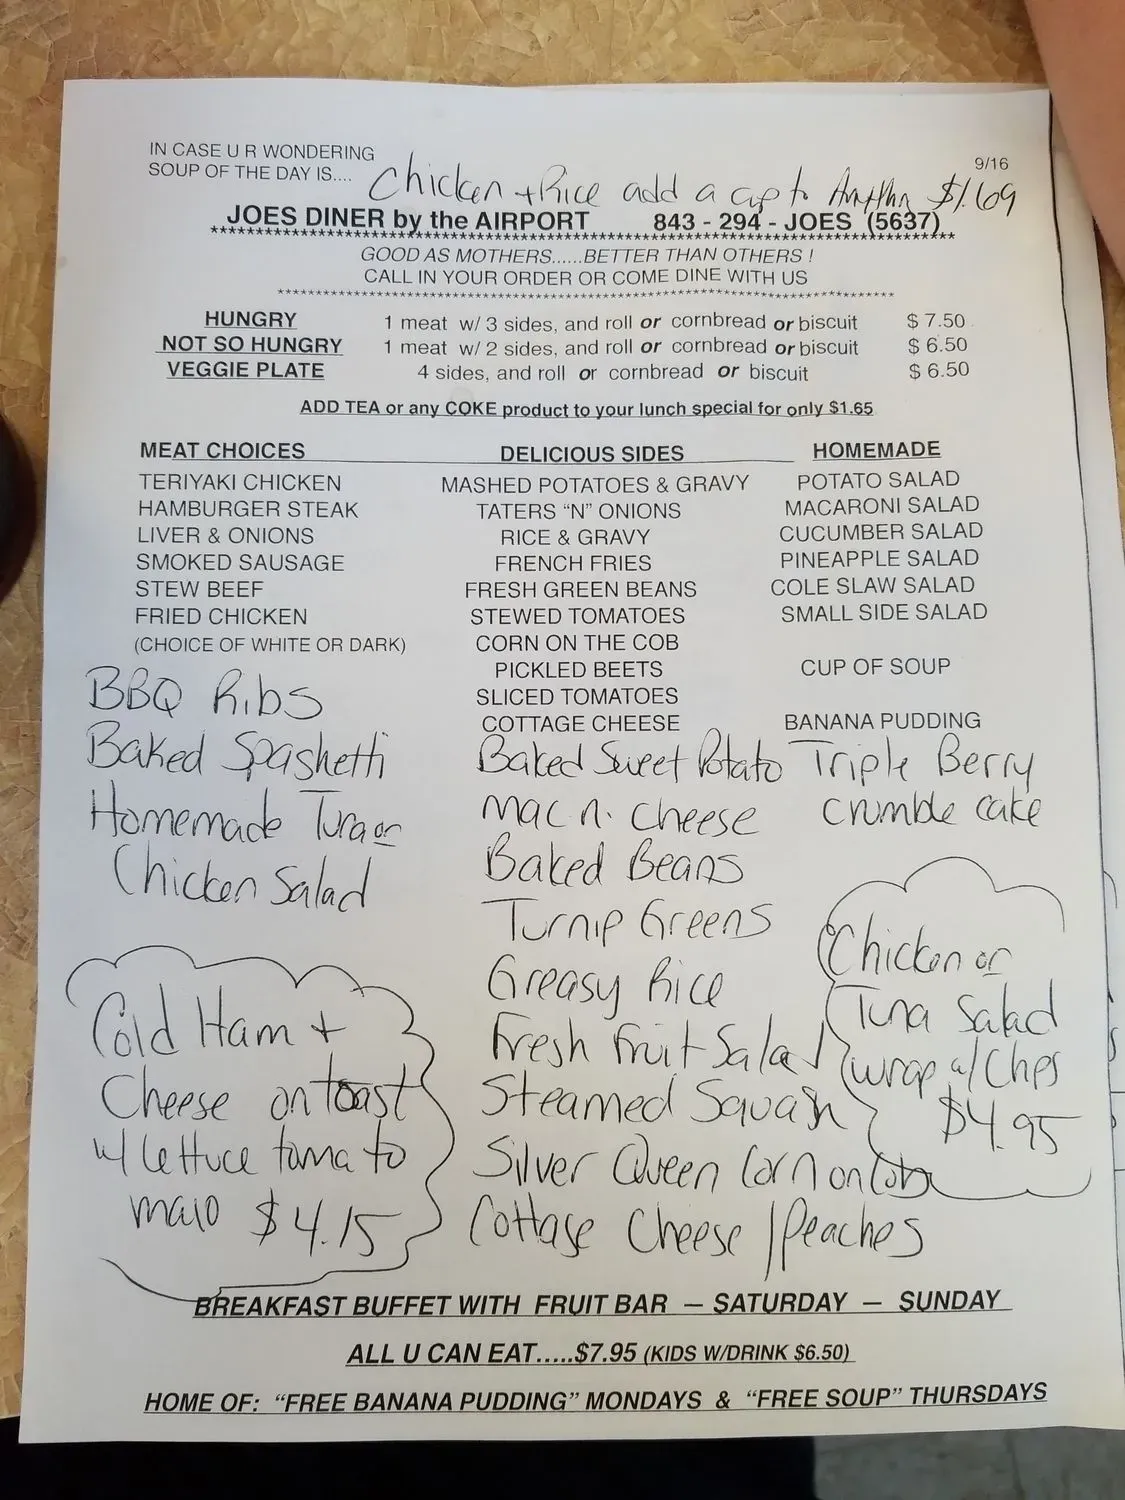 IN CASE U R WONDERING
SOUP OF THE DAY IS.... Chicken + Rice add a cup to $1.69
9/16
JOES DINER by the AIRPORT 843 - 294 - JOES (5637)
************************************************************
GOOD AS MOTHERS......BETTER THAN OTHERS !
CALL IN YOUR ORDER OR COME DINE WITH US
************************************************************
HUNGRY 1 meat w/ 3 sides, and roll or cornbread or biscuit $ 7.50
NOT SO HUNGRY 1 meat w/ 2 sides, and roll or cornbread or biscuit $ 6.50
VEGGIE PLATE 4 sides, and roll or cornbread or biscuit $ 6.50
ADD TEA or any COKE product to your lunch special for only $1.65
MEAT CHOICES
TERIYAKI CHICKEN
HAMBURGER STEAK
LIVER & ONIONS
SMOKED SAUSAGE
STEW BEEF
FRIED CHICKEN
(CHOICE OF WHITE OR DARK)
BBQ Ribs
Baked Spaghetti
Homemade Tuna or
Chicken Salad
Cold Ham +
Cheese on toast
w/ lettuce tomato
maio $4.15
DELICIOUS SIDES
MASHED POTATOES & GRAVY
TATERS "N" ONIONS
RICE & GRAVY
FRENCH FRIES
FRESH GREEN BEANS
STEWED TOMATOES
CORN ON THE COB
PICKLED BEETS
SLICED TOMATOES
COTTAGE CHEESE
Baked Sweet Potato
mac n. cheese
Baked Beans
Turnip Greens
Greasy Rice
Fresh Fruit Salad
Steamed Squash
Silver Queen Corn on Cob
Cottage Cheese / Peaches
HOMEMADE
POTATO SALAD
MACARONI SALAD
CUCUMBER SALAD
PINEAPPLE SALAD
COLE SLAW SALAD
SMALL SIDE SALAD
CUP OF SOUP
BANANA PUDDING
Triple Berry
crumble cake
Chicken or
Tuna Salad
wrap w/ Chps
$4.95
BREAKFAST BUFFET WITH FRUIT BAR — SATURDAY — SUNDAY
ALL U CAN EAT.....$7.95 (KIDS W/DRINK $6.50)
HOME OF: "FREE BANANA PUDDING" MONDAYS & "FREE SOUP" THURSDAYS